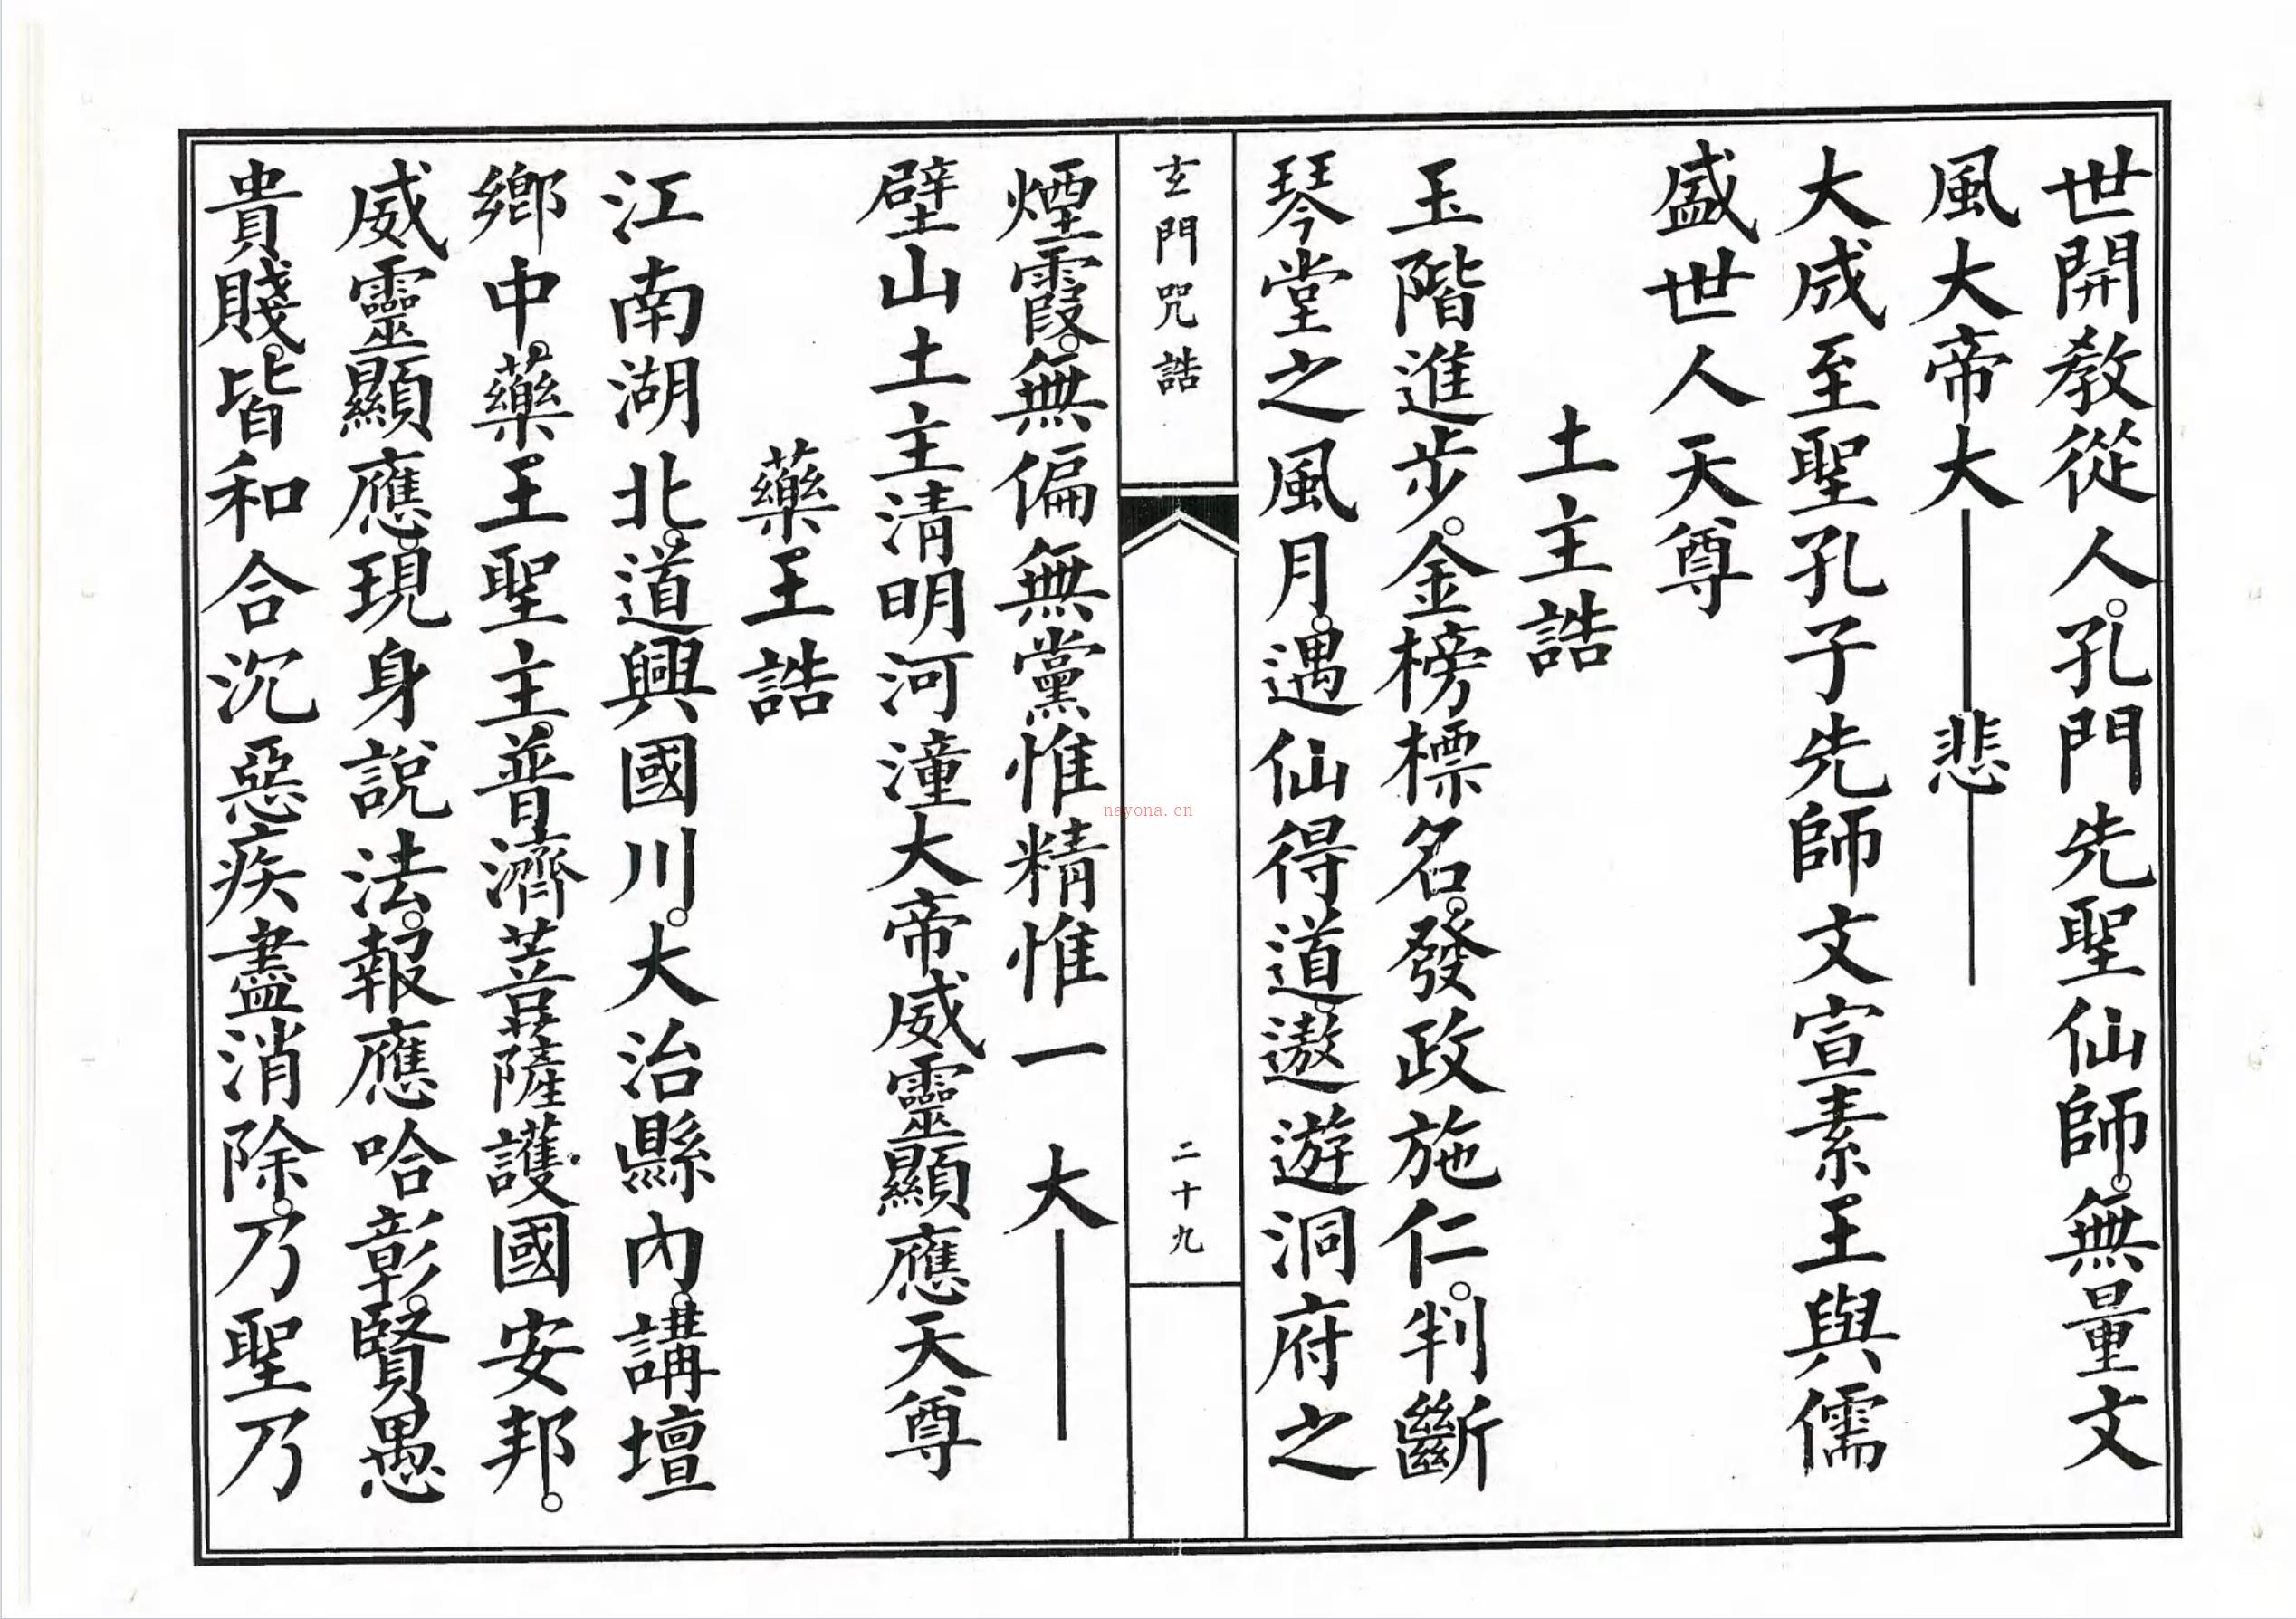 世開教從人。孔門先聖仙師。無量文
風大帝大——悲——
大成至聖孔子先師文宣素王與儒
盛世人天尊
土主誥
玉階進步。金榜標名。發政施仁。判斷
琴堂之風月。遇仙得道。遨遊洞府之
玄門咒誥
二十九
煙霞。無偏無黨惟精惟一 大——
壁山土主清明河潼大帝威靈顯應天尊
藥王誥
江南湖北。道興國川。大治縣內。講壇
鄉中。藥王聖主。普濟菩薩護國安邦。
威靈顯應。現身說法。報應哈彰。賢愚
貴賤。皆和合沉惡疾盡消除。乃聖乃
nayona.cn